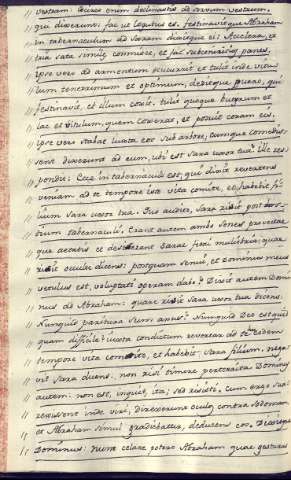 vestrum: idcirco enim declinastis ad servum vestrum,
qui dixerunt: fac ut locutus es. festinavitque Abraham
in tabernaculum ad Saram dixitque ei: Accelera, tria
sata similæ commisce, et fac subcinericios panes,
ipse vero ad armentum cucurrit et tulit inde vitu
lum tenerrimum et optimum, deditque puero, qui
festinavit, et illum coxit. tulit quoque butyrum et
lac et vitulum, quem coxerat, et posuit coram eis.
ipse vero stabat iuxta eos sub arbore, cumque comedis
sent dixerunt ad eum, ubi est Sara uxor tua? ille res
pondit: Ecce in tabernaculo est, cui dixit revertens
veniam ad te tempore isto vita comite, et habebit fi
lium Sara uxor tua. Quo audito, Sara risit post os
tium tabernaculi. Erant autem ambo senes provectæ
que ætatis et desierant Saræ fieri muliebria: quæ
risit occulte dicens: postquam senui, et Dominus meus
vetulus est, voluptati operam dabo? Dixit autem Domi
nus ad Abraham: quare risit Sara uxor tua dicens:
Nunquid paritura sum anus? Nunquid Deo est quid
quam difficile? iuxta condictum revertar ad te eodem
tempore vita comite, et habebit Sara filium. nega
vit Sara dicens: non risi timore perterrita. Dominus
autem: non est, inquit, ita; sed risisti. Cum ergo sur
rexissent inde viri, direxerunt oculos contra Sodomam
et Abraham simul gradiebatur, deducens eos. Dixitque
Dominus: Num celare potero Abraham quæ gesturus